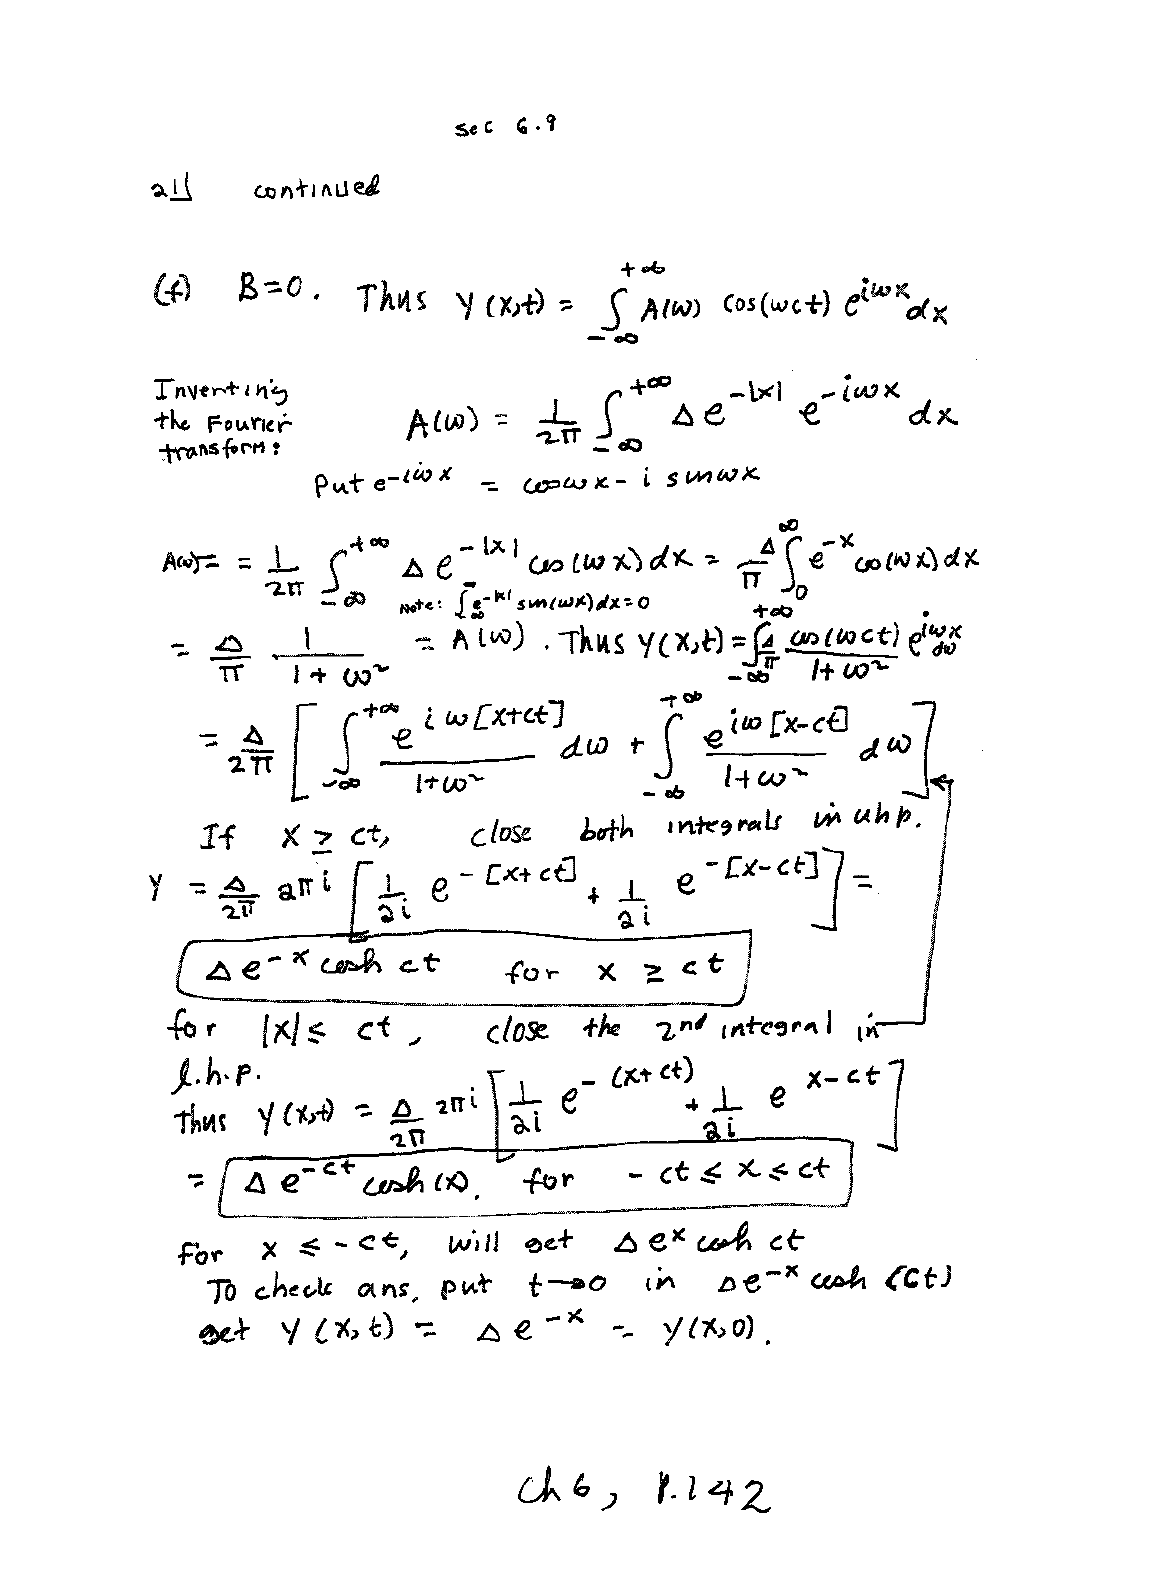 sec 6.9
21] continued
(f) B=0. Thus y(x,t) = ∫_{-∞}^{+∞} A(ω) cos(ωct) e^{iωx} dx
Inverting the Fourier transform: A(ω) = 1/2π ∫_{-∞}^{+∞} Δ e^{-|x|} e^{-iωx} dx
Put e^{-iωx} = cosωx - i sinωx
A(ω) = = 1/2π ∫_{-∞}^{+∞} Δ e^{-|x|} cos(ωx) dx = Δ/π ∫_0^∞ e^{-x} cos(ωx) dx
Note: ∫_{-∞}^{∞} e^{-|x|} sin(ωx) dx = 0
= Δ/π 1/(1+ω²) = A(ω). Thus y(x,t) = ∫_{-∞}^{+∞} Δ/π cos(ωct)/(1+ω²) e^{iωx} dω
= Δ/2π [ ∫_{-∞}^{+∞} e^{iω[x+ct]}/(1+ω²) dω + ∫_{-∞}^{+∞} e^{iω[x-ct]}/(1+ω²) dω ]
If x ≥ ct, close both integrals in uhp.
Y = Δ/2π 2πi [ 1/2i e^{-[x+ct]} + 1/2i e^{-[x-ct]} ] =
Δ e^{-x} cosh ct for x ≥ ct
for |x| ≤ ct, close the 2nd integral in
l.h.p.
Thus y(x,t) = Δ/2π 2πi [ 1/2i e^{-(x+ct)} + 1/2i e^{x-ct} ]
= Δ e^{-ct} cosh(x). for -ct ≤ x ≤ ct
For x ≤ -ct, will get Δ e^x cosh ct
To check ans, put t→0 in Δe^{-x} cosh (ct)
get y(x,t) = Δ e^{-x} = y(x,0).
Ch 6, P.142